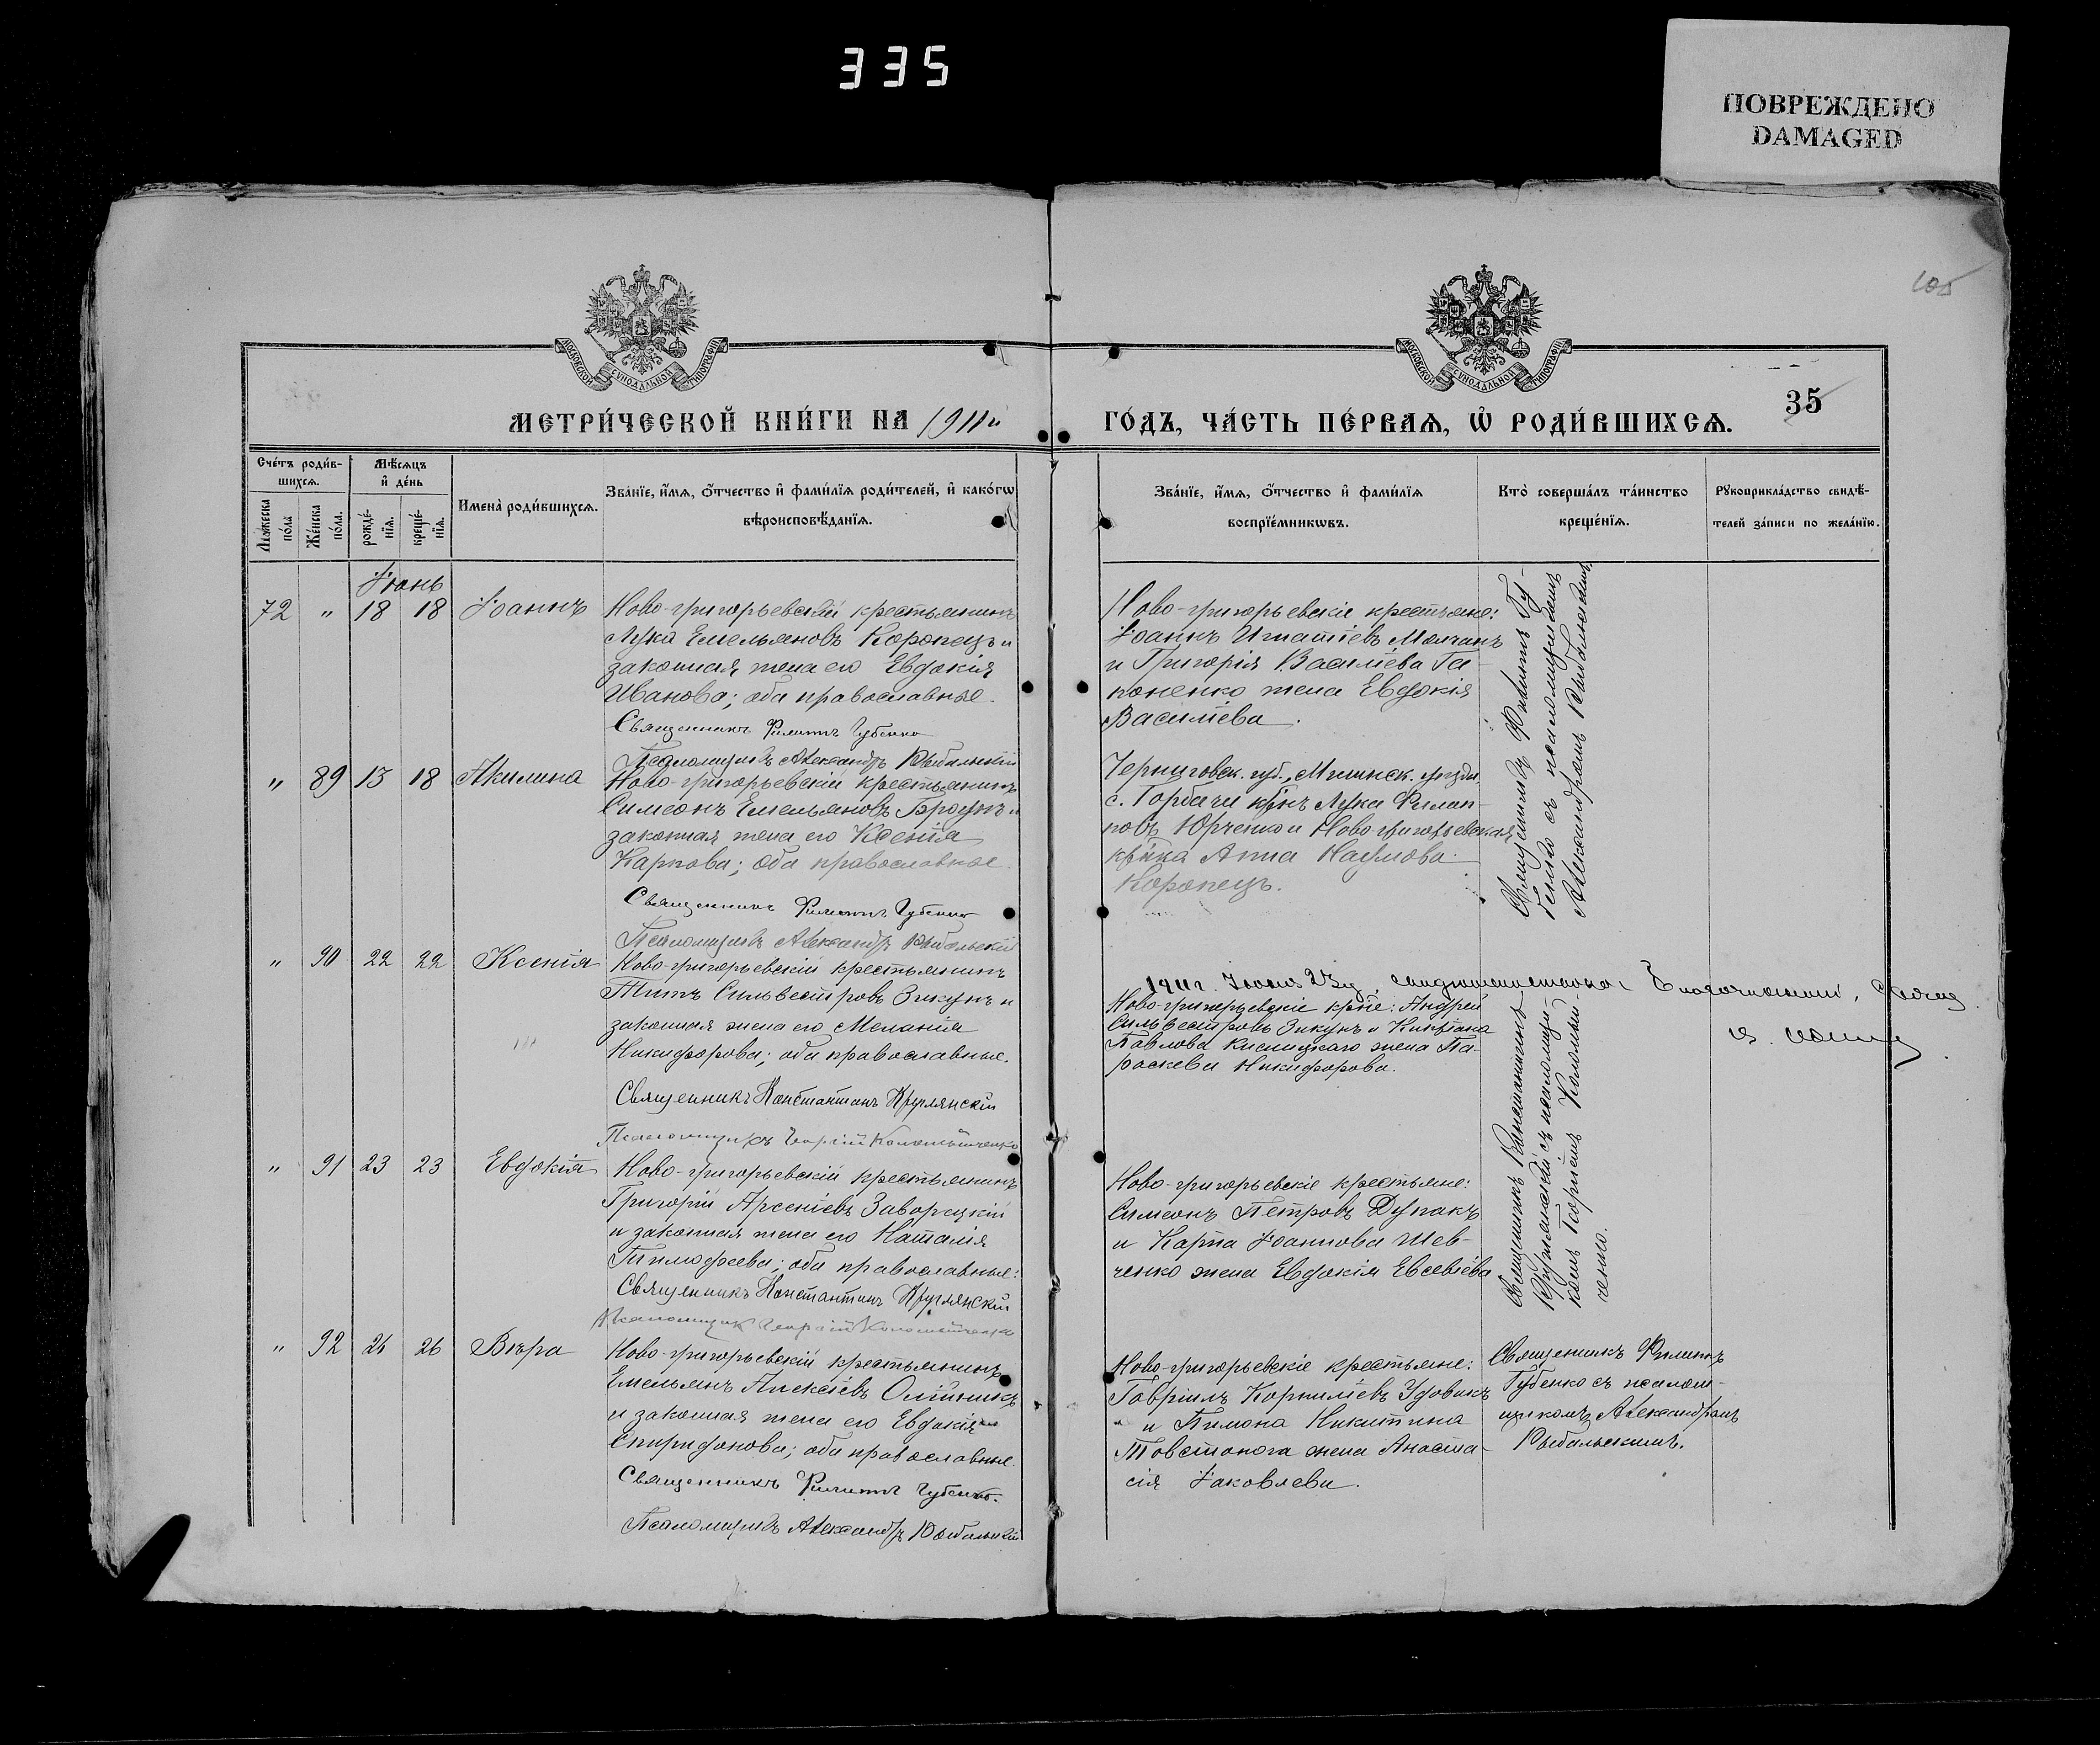 335
ПОВРЕЖДЕНО
DAMAGED
105
МОСКОВСКОЙ СѴНОДАЛЬНОЙ ТИПОГРАФІИ
МОСКОВСКОЙ СѴНОДАЛЬНОЙ ТИПОГРАФІИ
МЕТРИ́ЧЕСКОЙ КНИ́ГИ НА 1911й
ГО́ДЪ, ЧА́СТЬ ПЕ́РВАѦ, Ѡ҆ РОДИ́ВШИХСѦ.
35
Сче́тъ роди́в-
шихсѧ.
Мꙋ́жеска по́ла
Же́нска по́ла.
Мѣ́сѧцъ и҆ де́нь
рожде́нїѧ.
креще́нїѧ.
Имена̀ роди́вшихсѧ.
Зва́нїе, и҆́мѧ, ѻ҆́тчество и҆ фами́лїѧ роди́телей, и҆ како́гѡ
вѣроисповѣ́данїѧ.
Зва́нїе, и҆́мѧ, ѻ҆́тчество и҆ фами́лїѧ
воспрїе́мникѡвъ.
Кто̀ соверша́лъ та́инство
креще́нїѧ.
Рꙋкоприкла́дство свидѣ́-
телей за́писи по жела́нїю.
Іюнь
72 " 18 18 Іоаннъ
Ново-григорьевскій крестьянинъ
Лука Емельяновъ Коропецъ и
законная жена его Евдокія
Иванова; оба православные.
Священникъ Филиппъ Губенко
Псаломщикъ Александръ Рыбальскій
Ново-григорьевскіе крестьяне:
Іоаннъ Игнатіевъ Молчанъ
и Григорія Василіева Га-
поненко жена Евдокія
Василіева.
Священникъ Филиппъ Гу-
бенко съ псаломщикомъ
Александромъ Рыбальскимъ
" 89 13 18 Акилина
Ново-григорьевскій крестьянинъ
Симеонъ Емельяновъ Бровунъ и
законная жена его Ксенія
Карпова; оба православные.
Священникъ Филиппъ Губенко
Псаломщикъ Александръ Рыбальскій
Черниговск. губ., Мглинск. уѣзда
с. Горбачи кр-нъ Лука Филип-
повъ Юрченко и Ново-григорьевская
кр-нка Анна Наумова
Коропецъ.
" 90 22 22 Ксенія
Ново-григорьевскій крестьянинъ
Титъ Сильвестровъ Зикунъ и
законная жена его Меланія
Никифорова; оба православные.
Священникъ Константинъ Крутянскій
Псаломщикъ Георгій Коломійченко
Ново-григорьевскіе кр-не: Андрей
Сильвестровъ Зикунъ и
Павлова Кислицкаго жена Па-
раскева Никифорова.
Священникъ Константинъ
Крутянскій съ псаломщи-
комъ Георгіемъ Коломій-
ченко.
" 91 23 23 Евдокія
Ново-григорьевскій крестьянинъ
Григорій Арсеніевъ Заворецкій
и законная жена его Наталія
Тимофеева; оба православные.
Священникъ Константинъ Крутянскій
Псаломщикъ Георгій Коломійченко
Ново-григорьевскіе крестьяне:
Симеонъ Петровъ Дупакъ
и Карпа Іоаннова Шев-
ченко жена Евдокія Евсевіева.
" 92 26 26 Вѣра
Ново-григорьевскій крестьянинъ
Емельянъ Алексіевъ Олійникъ
и законная жена его Евдокія
Спиридонова; оба православные.
Священникъ Филиппъ Губенко.
Псаломщикъ Александръ Рыбальскій
Ново-григорьевскіе крестьяне:
Гавріилъ Корниліевъ Удовикъ
и Пимона Никитина
Товстонога жена Анаста-
сія Іаковлева.
Священникъ Филиппъ
Губенко съ псалом-
щикомъ Александромъ
Рыбальскимъ.